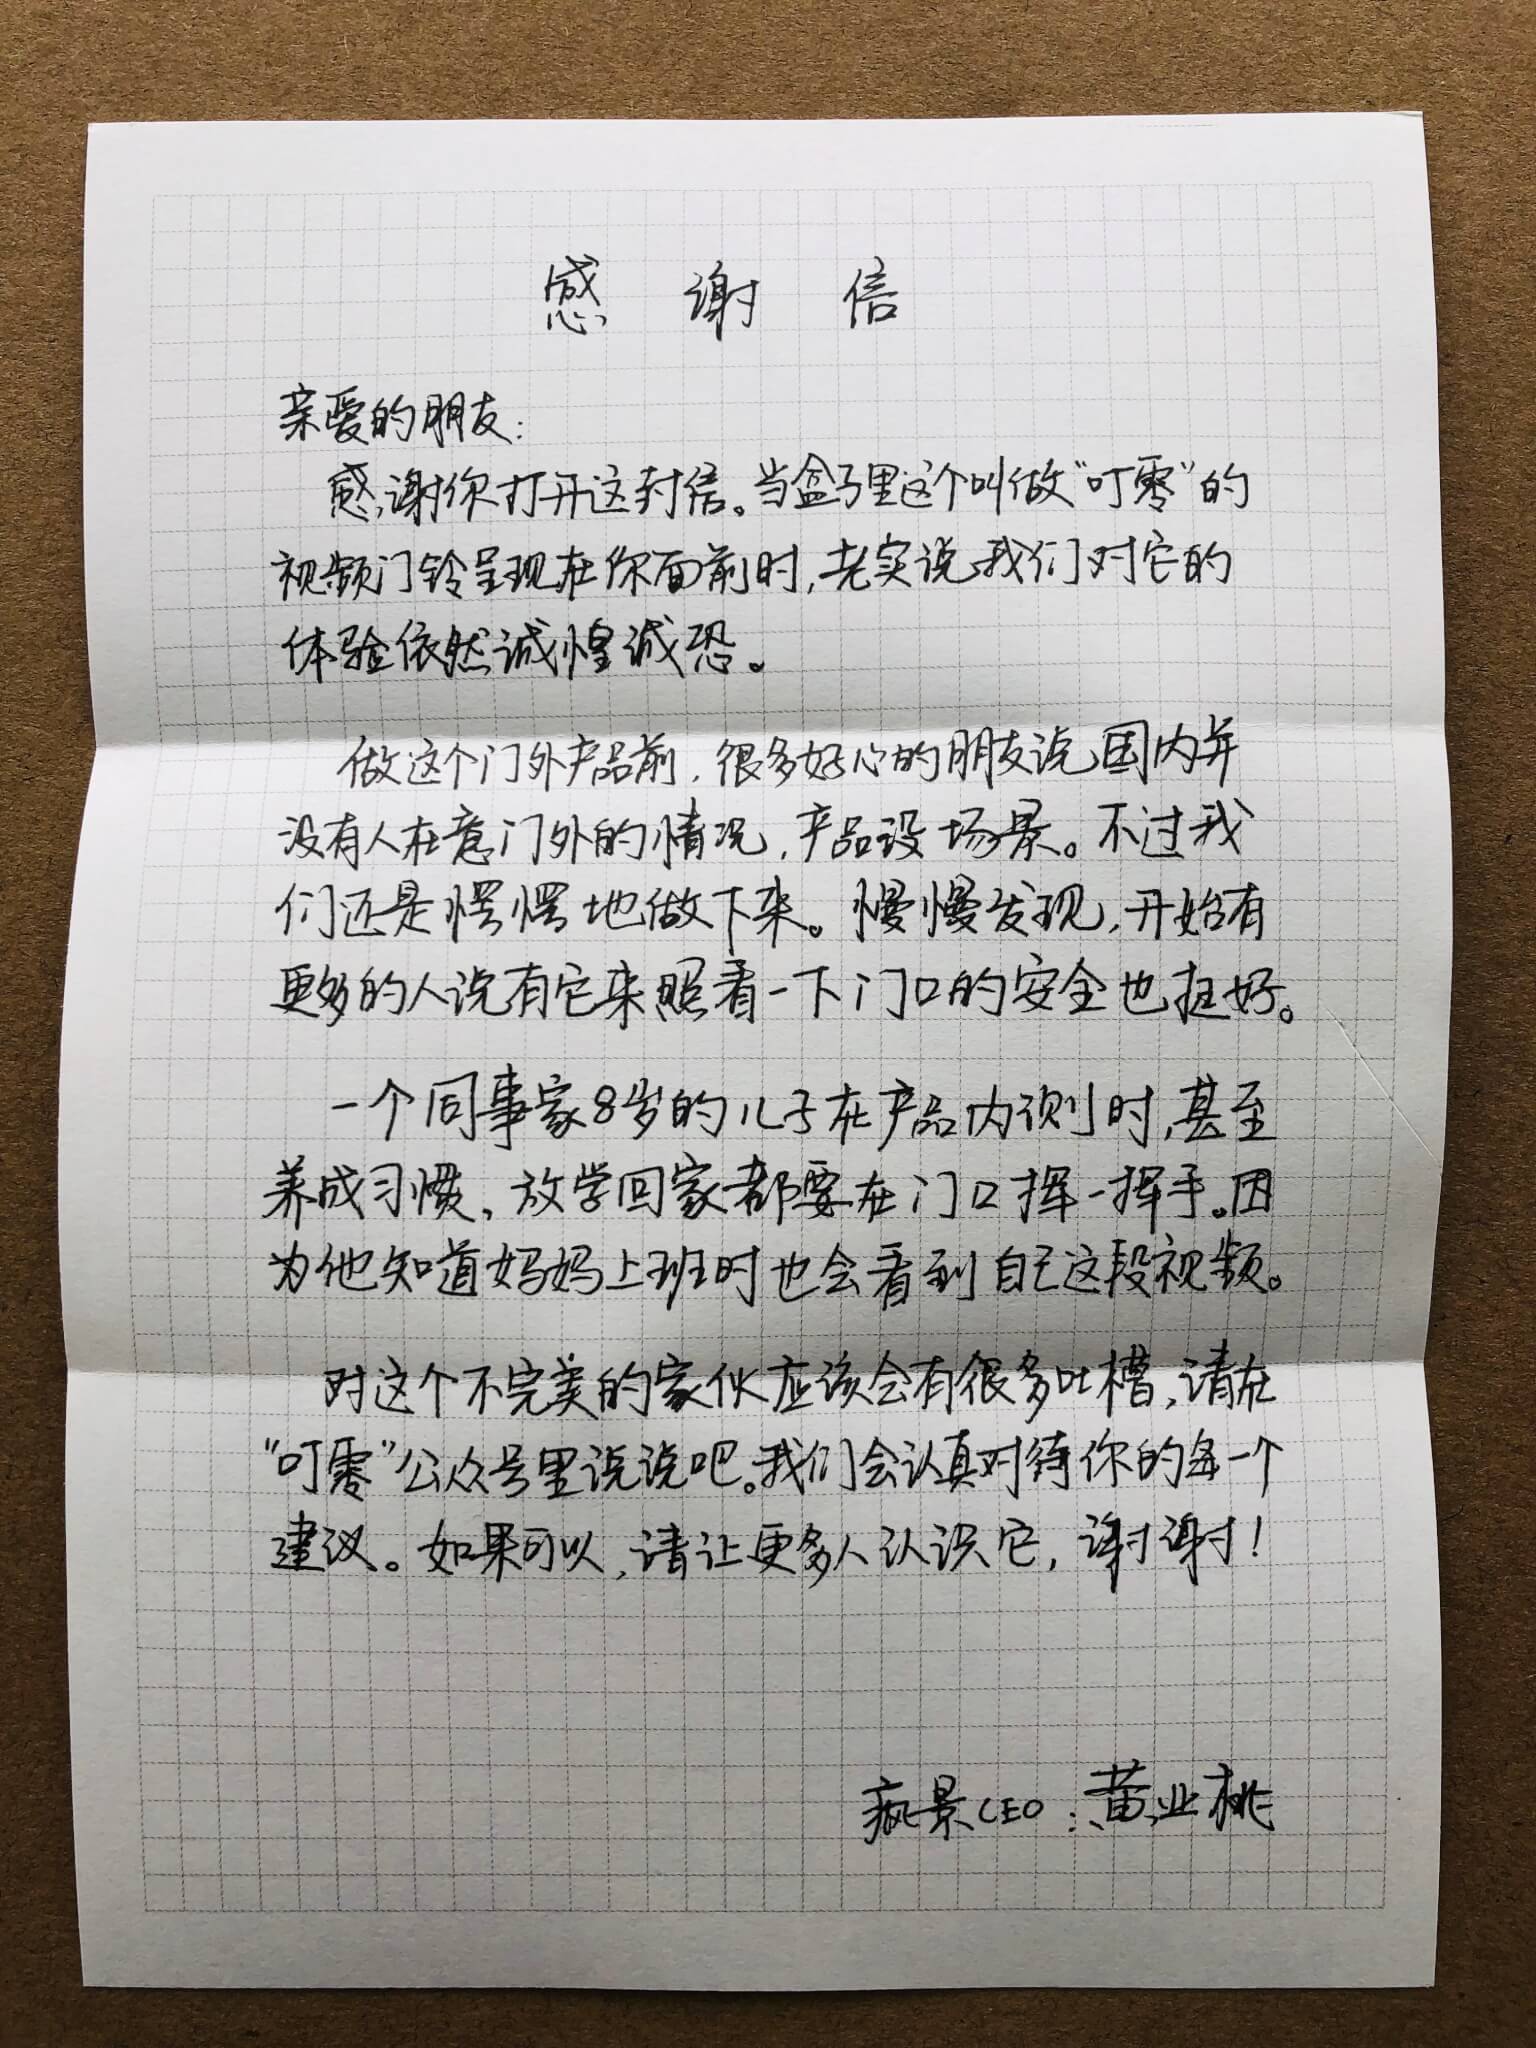 感谢信
亲爱的朋友：
感谢你打开这封信。当盒子里这个叫做“叮零”的
视频门铃呈现在你面前时，老实说我们对它的
体验依然诚惶诚恐。
做这个门外产品前，很多好心的朋友说国内并
没有人在意门外的情况，产品没场景。不过我
们还是愣愣地做下来。慢慢发现，开始有
更多的人说有它来照看一下门口的安全也挺好。
一个同事家8岁的儿子在产品内测时，甚至
养成习惯，放学回家都要在门口挥一挥手。因
为他知道妈妈上班时也会看到自己这段视频。
对这个不完美的家伙应该会有很多吐槽，请在
“叮零”公众号里说说吧。我们会认真对待你的每一个
建议。如果可以，请让更多人认识它，谢谢！
疯景CEO：黄业桃